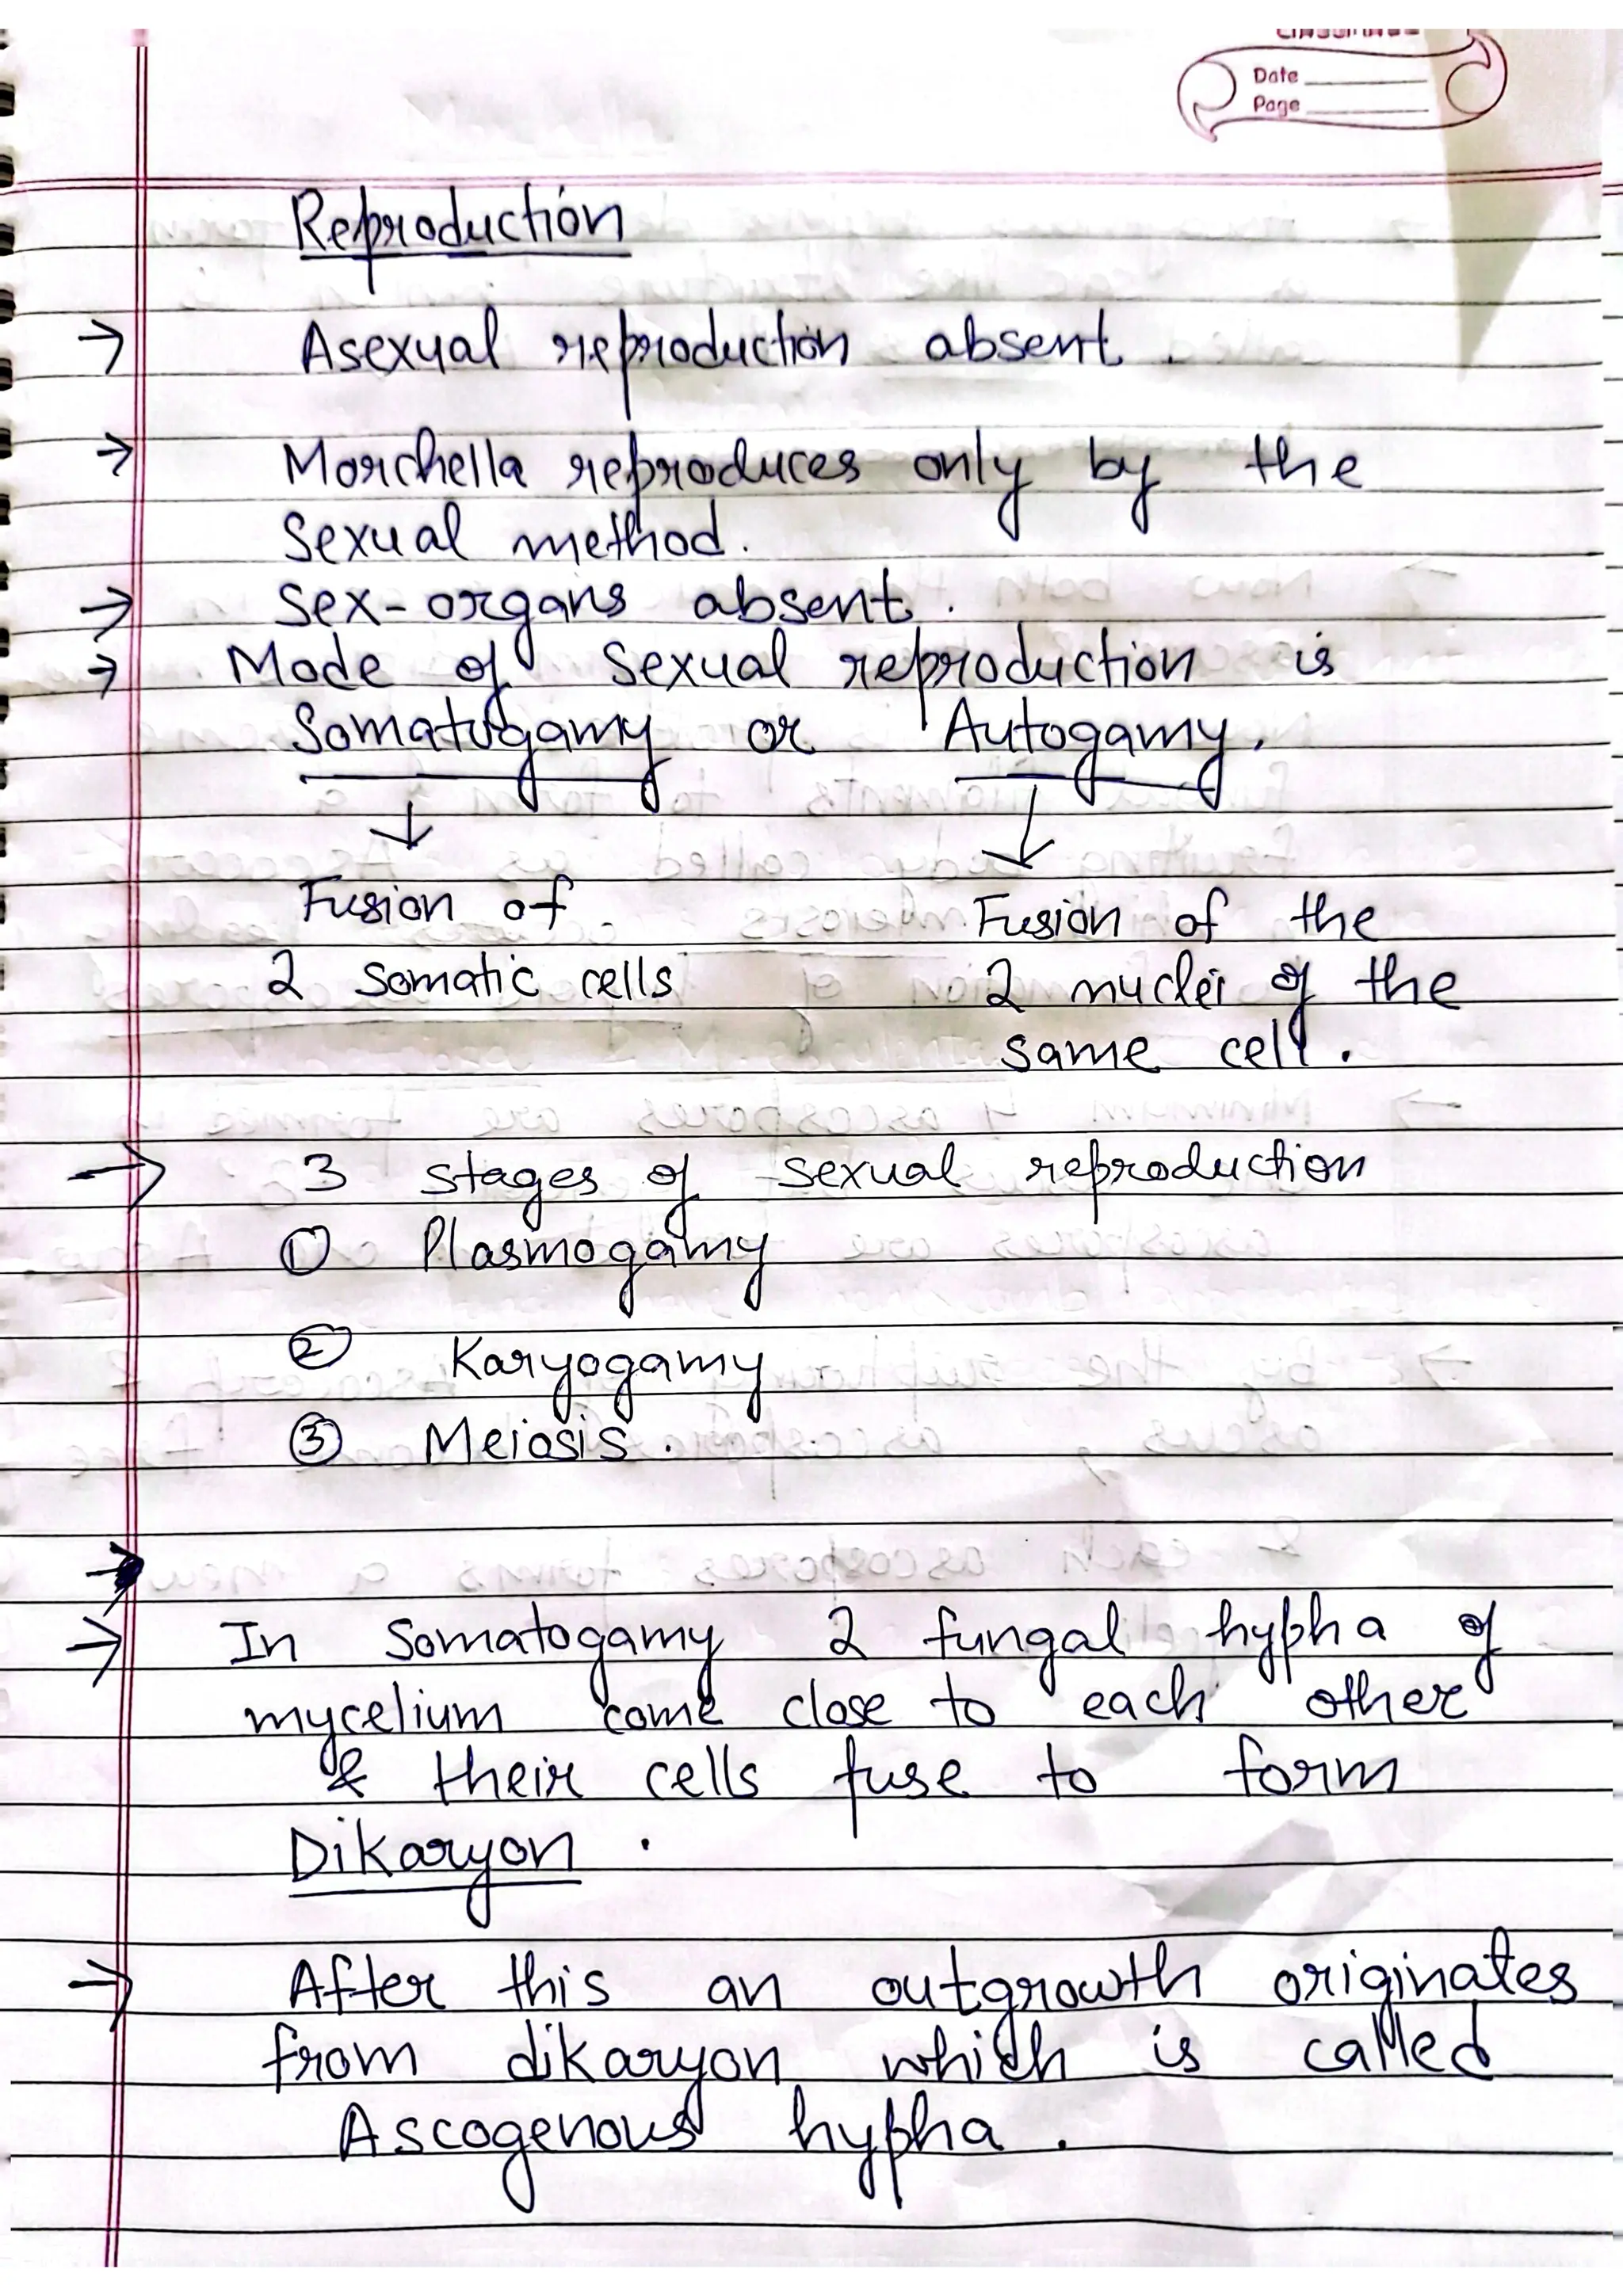 Date
Page
Reproduction
→ Asexual reproduction absent.
→ Morchella reproduces only by the
sexual method.
→ Sex-organs absent.
→ Mode of sexual reproduction is
Somatogamy or Autogamy.
↓ ↓
Fusion of Fusion of the
2 somatic cells 2 nuclei of the
same cell.
→ 3 stages of sexual reproduction
① Plasmogamy
② Karyogamy
③ Meiosis.
→ In Somatogamy 2 fungal hypha of
mycelium come close to each other
& their cells fuse to form
Dikaryon.
→ After this an outgrowth originates
from dikaryon which is called
Ascogenous hypha.